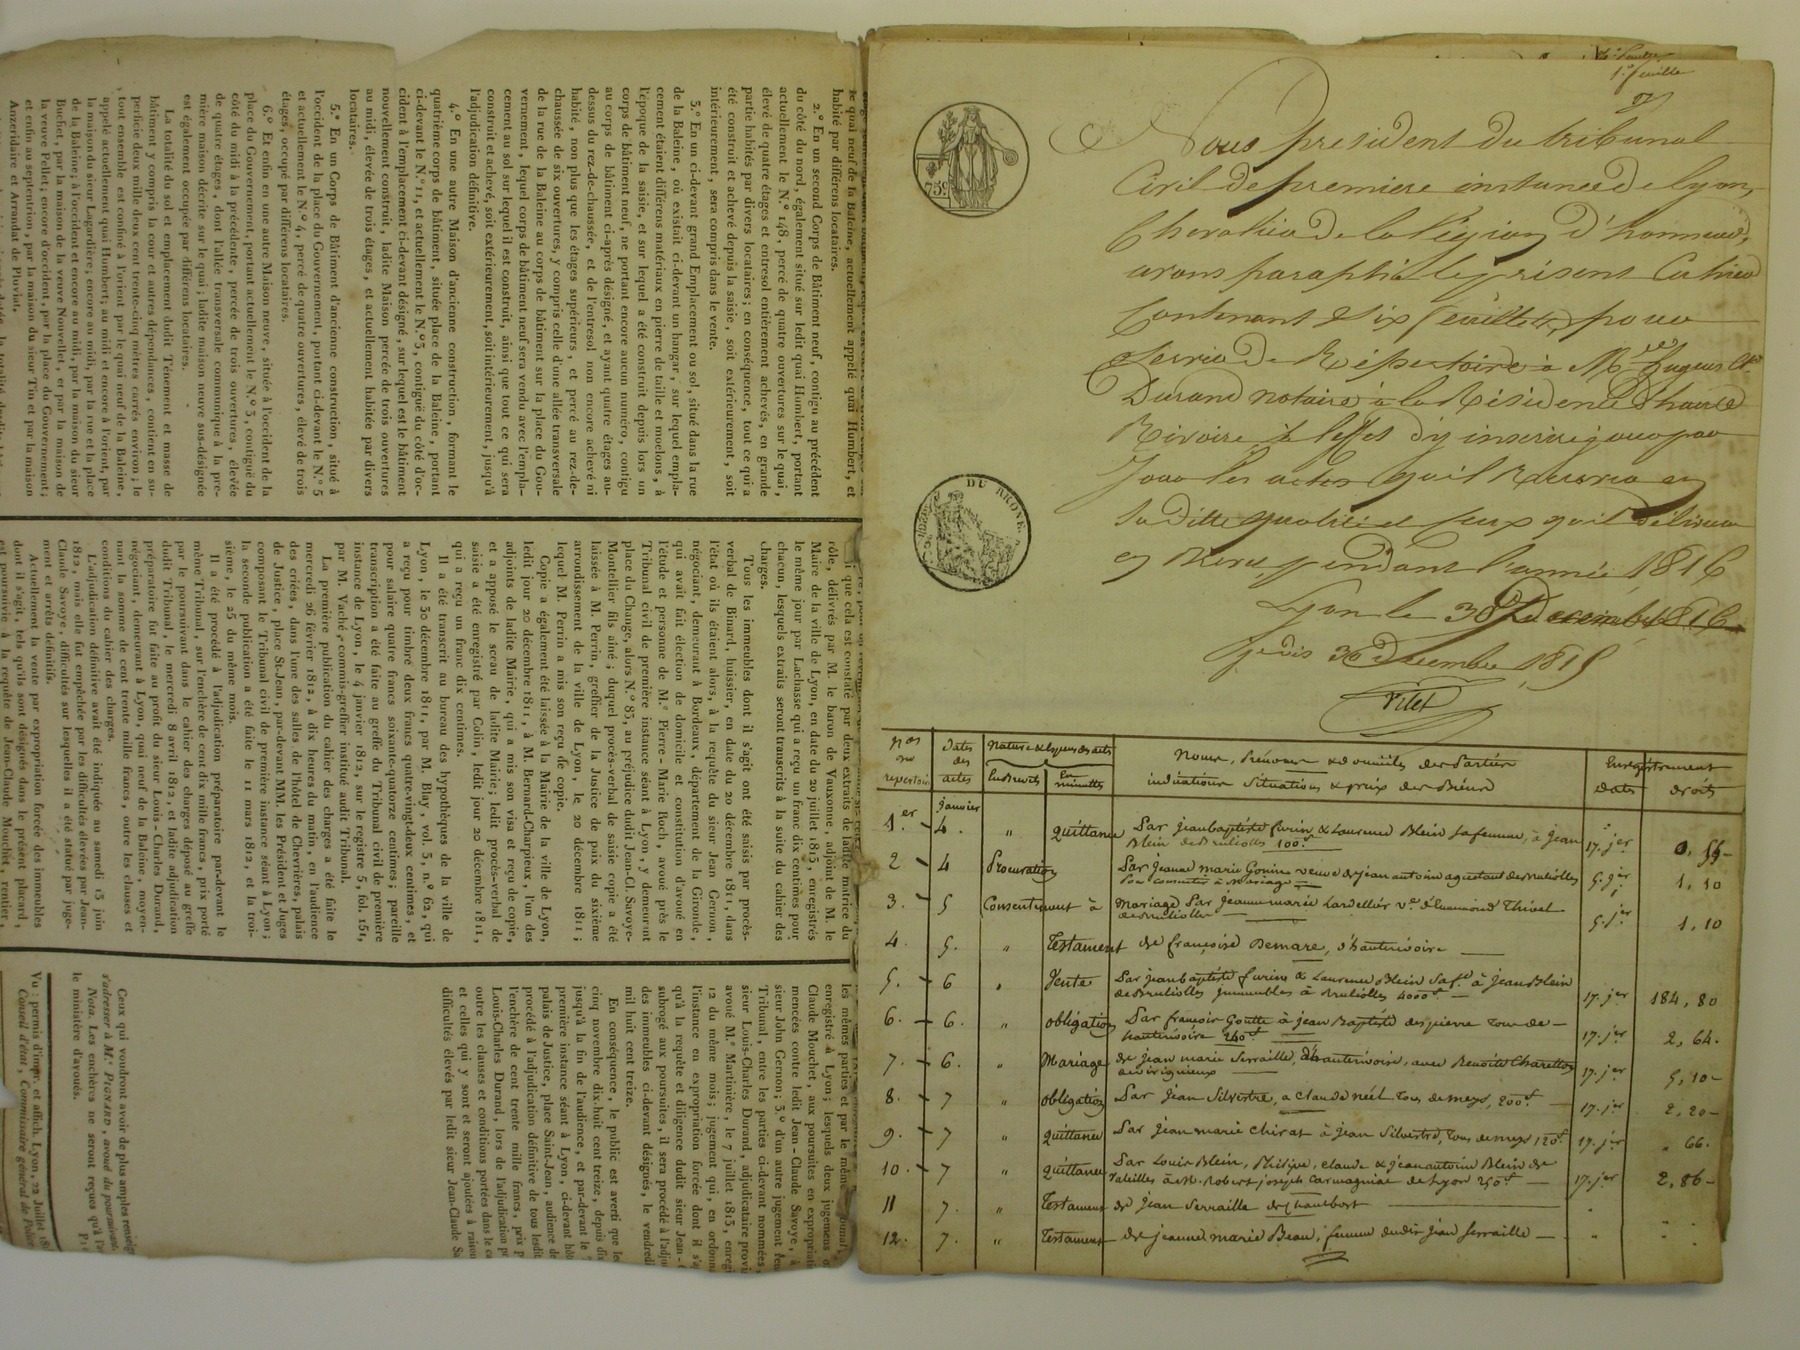 le quai neuf de la Baleine, actuellement appelé quai Humbert, et
habité par différens locataires.
2.° En un second Corps de Bâtiment neuf, contigu au précédent
du côté du nord, également situé sur ledit quai Humbert, portant
actuellement le N.° 148, percé de quatre ouvertures sur le quai,
élevé de quatre étages et entresol entièrement achevés, en grande
partie habités par divers locataires; en conséquence, tout ce qui a
été construit et achevé depuis la saisie, soit extérieurement, soit
intérieurement, sera compris dans la vente.
3.° En un ci-devant grand Emplacement ou sol, situé dans la rue
de la Baleine, où existait ci-devant un hangar, sur lequel empla-
cement étaient différens matériaux en pierre de taille et moelons, à
l'époque de la saisie, et sur lequel a été construit depuis lors un
corps de bâtiment neuf, ne portant encore aucun numéro, contigu
au corps de bâtiment ci-après désigné, et ayant quatre étages au-
dessus du rez-de-chaussée, et de l'entresol non encore achevé ni
habité, non plus que les étages supérieurs, et percé au rez-de-
chaussée de six ouvertures, y compris celle d'une allée transversale
de la rue de la Baleine au corps de bâtiment sur la place du Gou-
vernement, lequel corps de bâtiment neuf sera vendu avec l'empla-
cement au sol sur lequel il est construit, ainsi que tout ce qui sera
construit et achevé, soit extérieurement, soit intérieurement, jusqu'à
l'adjudication définitive.
4.° En une autre Maison d'ancienne construction, formant le
quatrième corps de bâtiment, située place de la Baleine, portant
ci-devant le N.° 11, et actuellement le N.° 3, contiguë du côté d'oc-
cident à l'emplacement ci-devant désigné, sur lequel est le bâtiment
nouvellement construit, ladite Maison percée de trois ouvertures
au midi, élevée de trois étages, et actuellement habitée par divers
locataires.
5.° En un Corps de Bâtiment d'ancienne construction, situé à
l'occident de la place du Gouvernement, portant ci-devant le N.° 5
et actuellement le N.° 4, percé de quatre ouvertures, élevé de trois
étages, occupé par différens locataires.
6.° Et enfin en une autre Maison neuve, située à l'occident de la
place du Gouvernement, portant actuellement le N.° 3, contiguë du
côté du midi à la précédente, percée de trois ouvertures, élevée
de quatre étages, dont l'allée transversale communique à la pre-
mière maison décrite sur le quai; ladite maison neuve sus-désignée
est également occupée par différens locataires.
La totalité du sol et emplacement dudit Ténement et masse de
bâtiment y compris la cour et autres dépendances, contient en su-
perficie deux mille deux cent trente-cinq mètres carrés environ; le
tout ensemble est confiné à l'orient par le quai neuf de la Baleine,
appelé actuellement quai Humbert; au midi et encore à l'orient, par
la maison du sieur Lagardière; encore au midi, par la rue et la place
de la Baleine; à l'occident et encore au midi, par la maison du sieur
Buchet, par la maison de la veuve Nouvellet, et par la maison de
la veuve Pellet; encore d'occident, par la place du Gouvernement;
et enfin au septentrion, par la maison du sieur Tin et par la maison
Anzeridaire et Arrandat de Pluviat.
rôle, délivrés par M. le baron de Vauxonne, adjoint de M. le
Maire de la ville de Lyon, en date du 20 juillet 1813, enregistrés
le même jour par Lachasse qui a reçu un franc dix centimes pour
chacun, lesquels extraits seront transcrits à la suite du cahier des
charges.
Tous les immeubles dont il s'agit ont été saisis par procès-
verbal de Binard, huissier, en date du 20 décembre 1811, dans
l'état où ils étaient alors, à la requête du sieur Jean Gernon,
négociant, demeurant à Bordeaux, département de la Gironde,
qui avait fait élection de domicile et constitution d'avoué en
l'étude et personne de M.e Pierre-Marie Roch, avoué près le
Tribunal civil de première instance séant à Lyon, y demeurant
place du Change, alors N.° 83, au préjudice dudit Jean-Cl. Savoye-
Montellier fils aîné; duquel procès-verbal de saisie copie a été
laissée à M. Perrin, greffier de la Justice de paix du sixième
arrondissement de la ville de Lyon, le 20 décembre 1811;
lequel M. Perrin a mis son reçu de copie.
Copie a également été laissée à la Mairie de la ville de Lyon,
ledit jour 20 décembre 1811, à M. Bernard-Charpieux, l'un des
adjoints de ladite Mairie, qui a mis son visa et reçu de copie,
et a apposé le sceau de ladite Mairie; ledit procès-verbal de
saisie a été enregistré par Colin, ledit jour 20 décembre 1811,
qui a reçu un franc dix centimes.
Il a été transcrit au bureau des hypothèques de la ville de
Lyon, le 30 décembre 1811, par M. Blay, vol. 5, n.° 62, qui
a reçu pour timbre deux francs quatre-vingt-deux centimes, et
pour salaire quatre francs soixante-quatorze centimes; pareille
transcription a été faite au greffe du Tribunal civil de première
instance de Lyon, le 4 janvier 1812, sur le registre 5, fol. 151,
par M. Vaché, commis-greffier institué audit Tribunal.
La première publication du cahier des charges a été faite le
mercredi 26 février 1812, à dix heures du matin, en l'audience
des criées, dans l'une des salles de l'hôtel de Chevrières, palais
de Justice, place St-Jean, par-devant MM. les Président et Juges
composant le Tribunal civil de première instance séant à Lyon;
la seconde publication a été faite le 11 mars 1812, et la troi-
sième, le 25 du même mois.
Il a été procédé à l'adjudication préparatoire par-devant le
même Tribunal, sur l'enchère de cent dix mille francs, prix porté
par le poursuivant dans le cahier des charges déposé au greffe
dudit Tribunal, le mercredi 8 avril 1812, et ladite adjudication
préparatoire fut faite au profit du sieur Louis-Charles Durand,
négociant, demeurant à Lyon, quai neuf de la Baleine, moyen-
nant la somme de cent trente mille francs, outre les clauses et
conditions du cahier des charges.
L'adjudication définitive avait été indiquée au samedi 13 juin
1812, mais elle fut empêchée par les difficultés élevées par Jean-
Claude Savoye, difficultés sur lesquelles il a été statué par juge-
ment et arrêts définitifs.
Actuellement la vente par expropriation forcée des immeubles
dont il s'agit, tels qu'ils sont désignés dans le présent placard,
est poursuivie à la requête de Jean-Claude Mouchet, rentier,
les mêmes parties et par le même
enregistré à Lyon; lesquels deux jugemens
Claude Mouchet, aux poursuites en expropriation
mencées contre ledit Jean-Claude Savoye, à
sieur John Gernon; 3.° d'un autre jugement
Tribunal, entre les parties ci-devant nommées,
sieur Louis-Charles Durand, adjudicataire
avoué M.e Martinière, le 7 juillet 1813,
12 du même mois; jugement qui, en
l'instance en expropriation forcée dont il
qu'à la requête et diligence dudit sieur Jean-
subrogé aux poursuites, il sera procédé à
des immeubles ci-devant désignés, le vendredi
mil huit cent treize.
En conséquence, le public est averti que
cinq novembre dix-huit cent treize, depuis
jusqu'à la fin de l'audience, et par-devant le
première instance séant à Lyon, ci-devant
palais de Justice, place Saint-Jean, audience
procédé à l'adjudication définitive de tous
l'enchère de cent trente mille francs, prix
Louis-Charles Durand, lors de l'adjudication
outre les clauses et conditions portées dans le
et celles qui y sont et seront ajoutées à raison
difficultés élevés par ledit sieur Jean-Claude
Ceux qui voudront avoir de plus amples
s'adresser à M.e PIGNARD, avoué du poursuivant,
Nota. Les enchères ne seront reçues qu'à
le ministère d'avoués.
Vu: permis d'impr. et affich. Lyon, 22 Juillet
Conseil d'état, Commissaire général de Police
1.e feuille
75c
DU RHONE
Nous president du tribunal
Civil de premiere instance de lyon,
Chevalier de la légion d'honneur,
avons paraphé le présent Cahier
Contenant dix feuillets, pour
servir de Répertoire à Me hugues
Durand notaire à la Résidence d'haute
Rivoire à l'effet d'y inscrire jour par
Jour les actes qu'il Recevra en
sa ditte qualité et ceux qu'il délivrera
en Brevet pendant l'année 1816
Lyon le 30 Decembre 1816
je dis 30 decembre 1815
Vitet
Nos du repertoire
Dates des actes
Nature & espece des actes
En Brevets
En minuttes
Noms, Prénoms & domiciles des Parties
indications Situations & prix des Biens
Enregistrement
Dates
droits
1.er janvier 4. " quittance Par jeanbaptiste furin & Laurence Blein sa femme, à jean
Blein de Brullioles 100f 17. jer 0, 55
2 4 Procuration Par Jeanne marie Gonin veuve de jean antoine aguetant de Brulioles
Pour Consentir à Mariage 5. jer 1, 10
3. 5 Consentement à Mariage Par Jeanne marie Lardellier ve d'Ennemond Thivel
de Brulioles 5. jer 1, 10
4. 5. " Testament de françoise Demare, d'hauterivoire
5. 6 " Vente Par jeanbaptiste furin & Laurence Blein sa fe à jean Blein
de Brulioles immeubles à Brulioles 4000f 17. jer 184, 80
6. 6. " obligation Par françois Goutte à jean Baptiste despierre tous de
hauterivoire 240f 17. jer 2, 64.
7. 6. " Mariage de jean marie Serraille, d'hauterivoire, avec Benoite Charetton
de virigneux 17. jer 5, 10
8. 7 " obligation Par Jean Silvestre, a claude néel tous de meys, 200f 17. jer 2, 20
9. 7 " quittance Par jean marie Chirat à jean Silvestre, tous de meys 120f 17. jer " 66.
10. 7 " quittance Par Louis Blein, Philipe, claude & jean antoine Blein de
à Sr. Robert joseph Carmagniac de Lyon 250f 17. jer 2, 86
11 7. " Testament de jean Serraille de Chambost
12. 7. " Testament de jeanne marie Beau, femme dudit jean Serraille